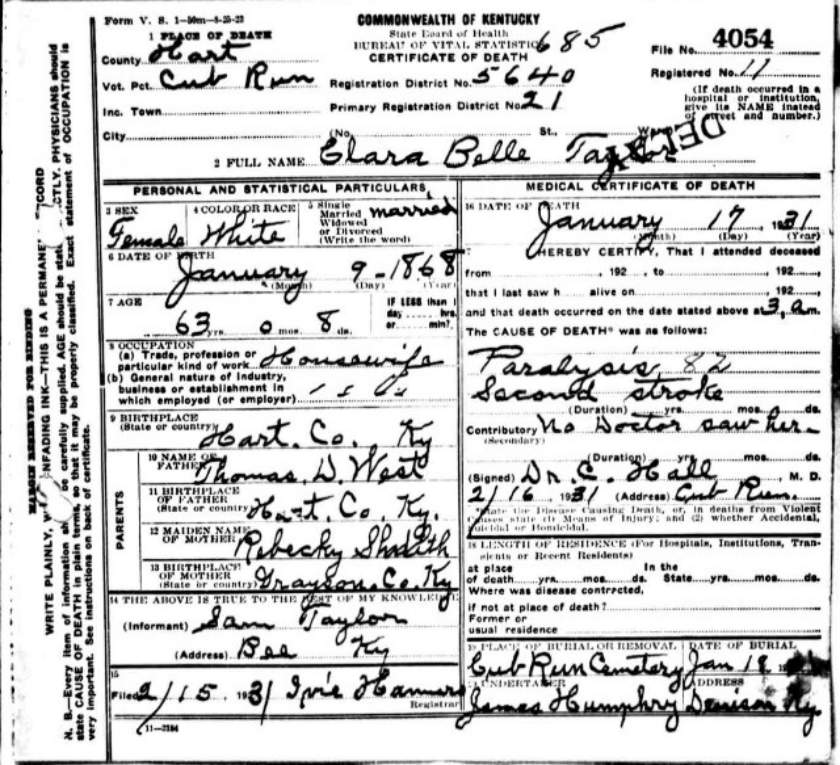 Form V. S. 1-50m-8-25-23
COMMONWEALTH OF KENTUCKY
State Board of Health
BUREAU OF VITAL STATISTICS 685
CERTIFICATE OF DEATH
File No. 4054
Registered No. 11
(If death occurred in a hospital or institution, give its NAME instead of street and number.)
1 PLACE OF DEATH
County Hart
Vot. Pct. Cub Run
Registration District No. 5640
Inc. Town
Primary Registration District No. 21
City (No. St., Ward)
DELAY
2 FULL NAME Clara Belle Taylor
PERSONAL AND STATISTICAL PARTICULARS
3 SEX Female
4 COLOR OR RACE White
5 Single Married Widowed or Divorced (Write the word) married
6 DATE OF BIRTH January 9 - 1868
(Month) (Day) (Year)
7 AGE 63 yrs. 0 mos. 8 ds.
IF LESS than 1 day hrs. or min?
8 OCCUPATION
(a) Trade, profession or particular kind of work Housewife
(b) General nature of industry, business or establishment in which employed (or employer)
9 BIRTHPLACE
(State or country) Hart. Co. Ky
PARENTS
10 NAME OF FATHER Thomas D. West
11 BIRTHPLACE OF FATHER (State or country) Hart. Co. Ky.
12 MAIDEN NAME OF MOTHER Rebecky
13 BIRTHPLACE OF MOTHER (State or country) Grayson. Co. Ky
14 THE ABOVE IS TRUE TO THE BEST OF MY KNOWLEDGE
(Informant) Sam Taylor
(Address) Bee Ky
15
Filed 2/15, 1931 Ivie
Registrar
11-3184
MEDICAL CERTIFICATE OF DEATH
16 DATE OF DEATH
January 17 1931
(Month) (Day) (Year)
17 I HEREBY CERTIFY, That I attended deceased
from , 192 , to , 192 ,
that I last saw h alive on , 192 ,
and that death occurred on the date stated above at 3 a.m.
The CAUSE OF DEATH* was as follows:
Paralysis, 82
Second stroke
(Duration) yrs. mos. ds.
Contributory No Doctor saw her
(Secondary)
(Duration) yrs. mos. ds.
(Signed) Dr. C. Hall, M. D.
2/16 1931 (Address) Cub Run.
*State the Disease Causing Death, or, in deaths from Violent
Causes state (1) Means of Injury; and (2) whether Accidental,
Suicidal or Homicidal.
18 LENGTH OF RESIDENCE (For Hospitals, Institutions, Transients or Recent Residents)
at place In the
of death yrs. mos. ds. State yrs. mos. ds.
Where was disease contracted,
if not at place of death?
Former or
usual residence
19 PLACE OF BURIAL OR REMOVAL DATE OF BURIAL
Cub Run Cemetery Jan 18
UNDERTAKER ADDRESS
James Humphry Denison Ky.
MARGIN RESERVED FOR BINDING